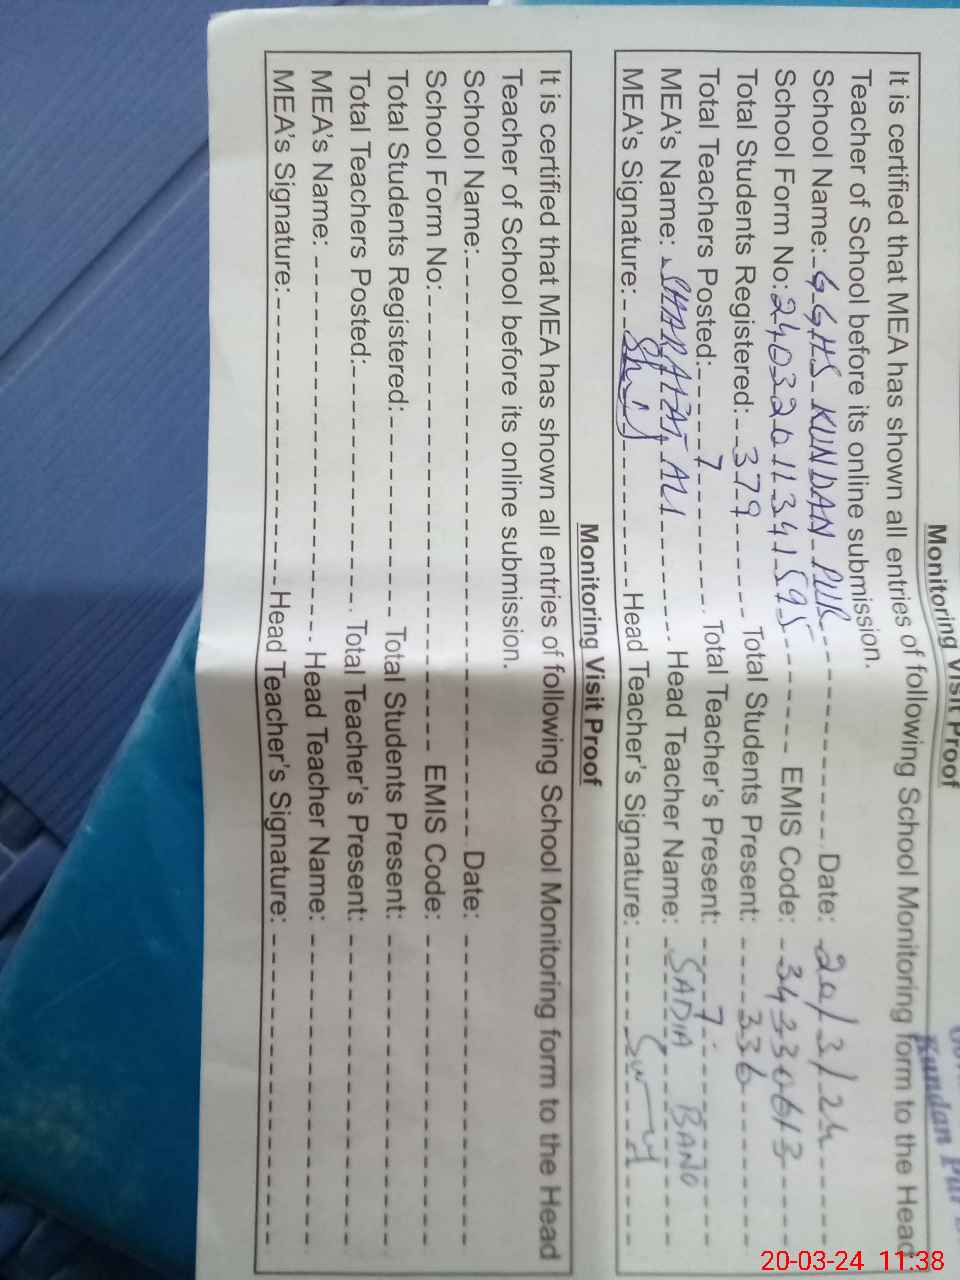 Monitoring Visit Proof
Kundan Pur
It is certified that MEA has shown all entries of following School Monitoring form to the Head
Teacher of School before its online submission.
School Name: GGHS KUNDAN PUR Date: 20/3/24
School Form No: 24032011341595 EMIS Code: 34330613
Total Students Registered: 379 Total Students Present: 336
Total Teachers Posted: 7 Total Teacher's Present: 7
MEA's Name: SHARAFAT ALI Head Teacher Name: SADIA BANO
MEA's Signature: Head Teacher's Signature:
Monitoring Visit Proof
It is certified that MEA has shown all entries of following School Monitoring form to the Head
Teacher of School before its online submission.
School Name: Date:
School Form No: EMIS Code:
Total Students Registered: Total Students Present:
Total Teachers Posted: Total Teacher's Present:
MEA's Name: Head Teacher Name:
MEA's Signature: Head Teacher's Signature:
20-03-24 11:38